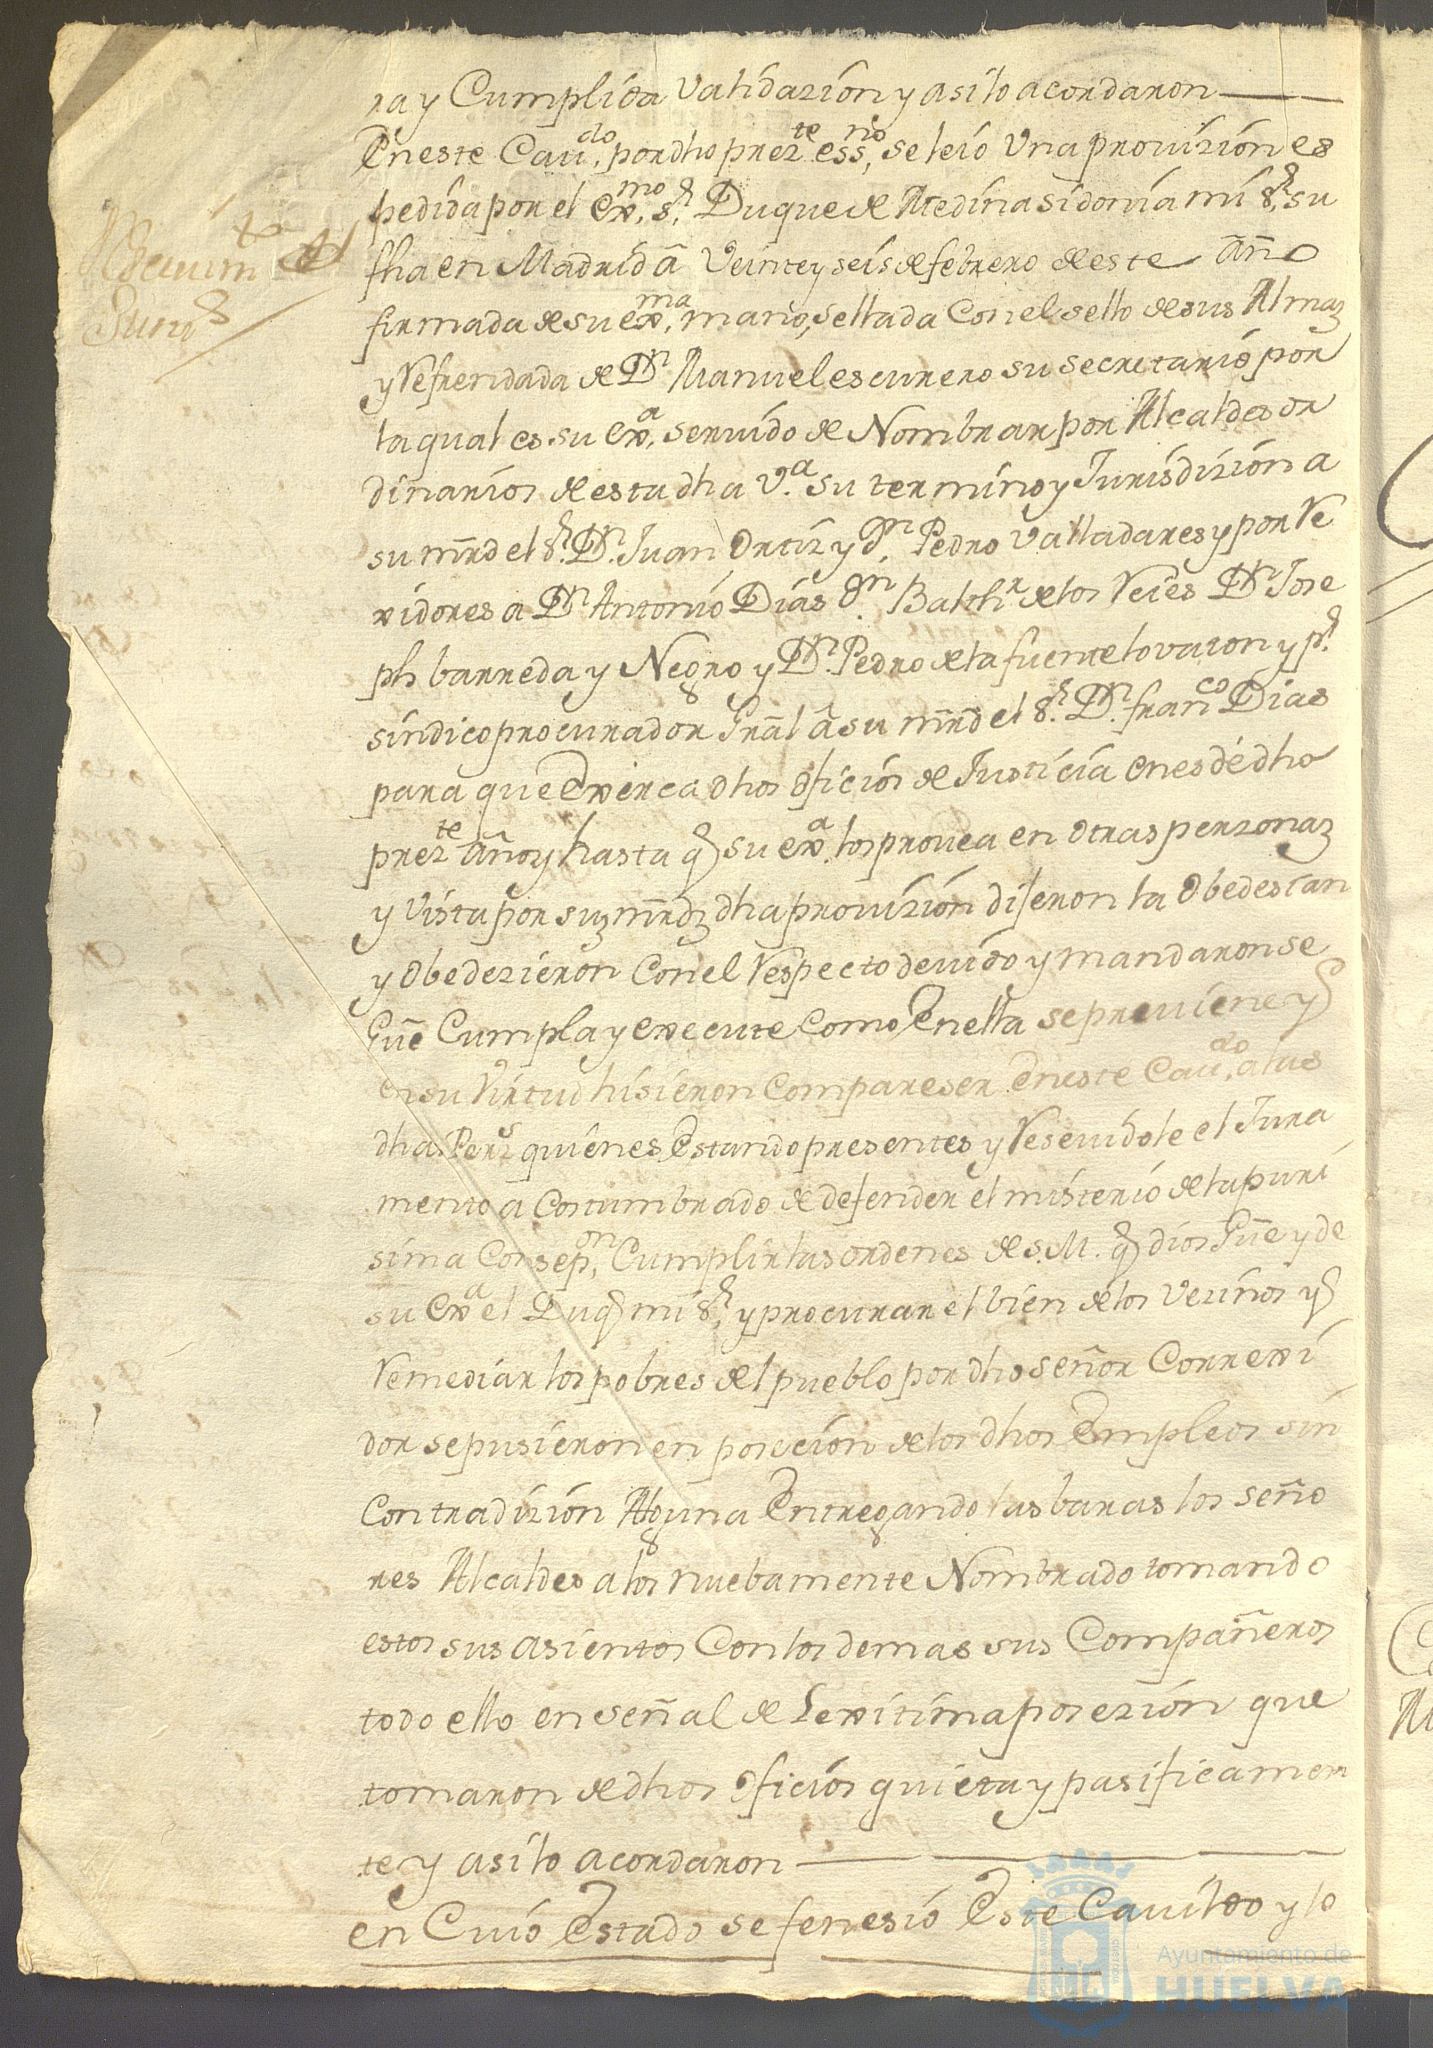 ra y Cumplida Validazion y asilo acordaron
En este Cau.do, por dho prez.te ess.no, se leió Una provizion es
pedida por el Ex.mo, s.r Duque de Medina sidonia mi s.r, su
fha en Madrid â Veinte y seis de febrero de este año
firmada de su ex.ma, mano, sellada Con el sello de sus Armaz
y Refrendada de D.n Manuel escurero su secretario por
la qual es su Ex.a, seruido de Nombrar por Alcaldes or
dinarios de esta dha V.a su termino y Jurisdizion a
su mrd el s.r D.n Juan Ortiz y D.n Pedro Valladares y por Re
xidores a D.n Antonio Dias D.n Balth.r de los Reies D.n Jose
ph barreda y Negro y D.n Pedro de la fuente lovaton y p.r
sindico procurador Gral â su mrd el s.r D.n fran.co Dias
para que Exerca dhos oficios de Justicia en es de dho
prez.te año y hasta q su ex.a los provea en otras perzonaz
y Vista por suz mrdz dha provizion dijeron la Obedesian
y Obedezieron Con el Respecto deuido y mandaron se
Gue Cumpla y execute Como En ella se preuiene y
en su Virtud hisieron Compareser En este Cau.do, a lus
dhas Pers quienes Estando presentes y Reseuidole el Jura
mento a Costumbrado de defender el misterio de la puri
sima Consep.on, Cumplir las ordenes de S. M. q dios Gue y de
su Ex.a el Duq mi s.r, y procurar el bien de los Vezinos y
Remediar los pobres del pueblo por dho señor Correxi
dor se pusieron en posecion de los dhos Empleos sin
Contradizion Alguna Entregando las baras los seño
res Alcaldes a los nuebamente Nombrado tomando
estos sus asientos Con los demas sus Compañeros
todo ello en señal de Lexitima posezion que
tomaron de dhos oficios quieta y pasificamen
te y asilo acordaron
en Cuio Estado se fenesió Este Cauildo y lo
Ayuntamiento de
HUELVA